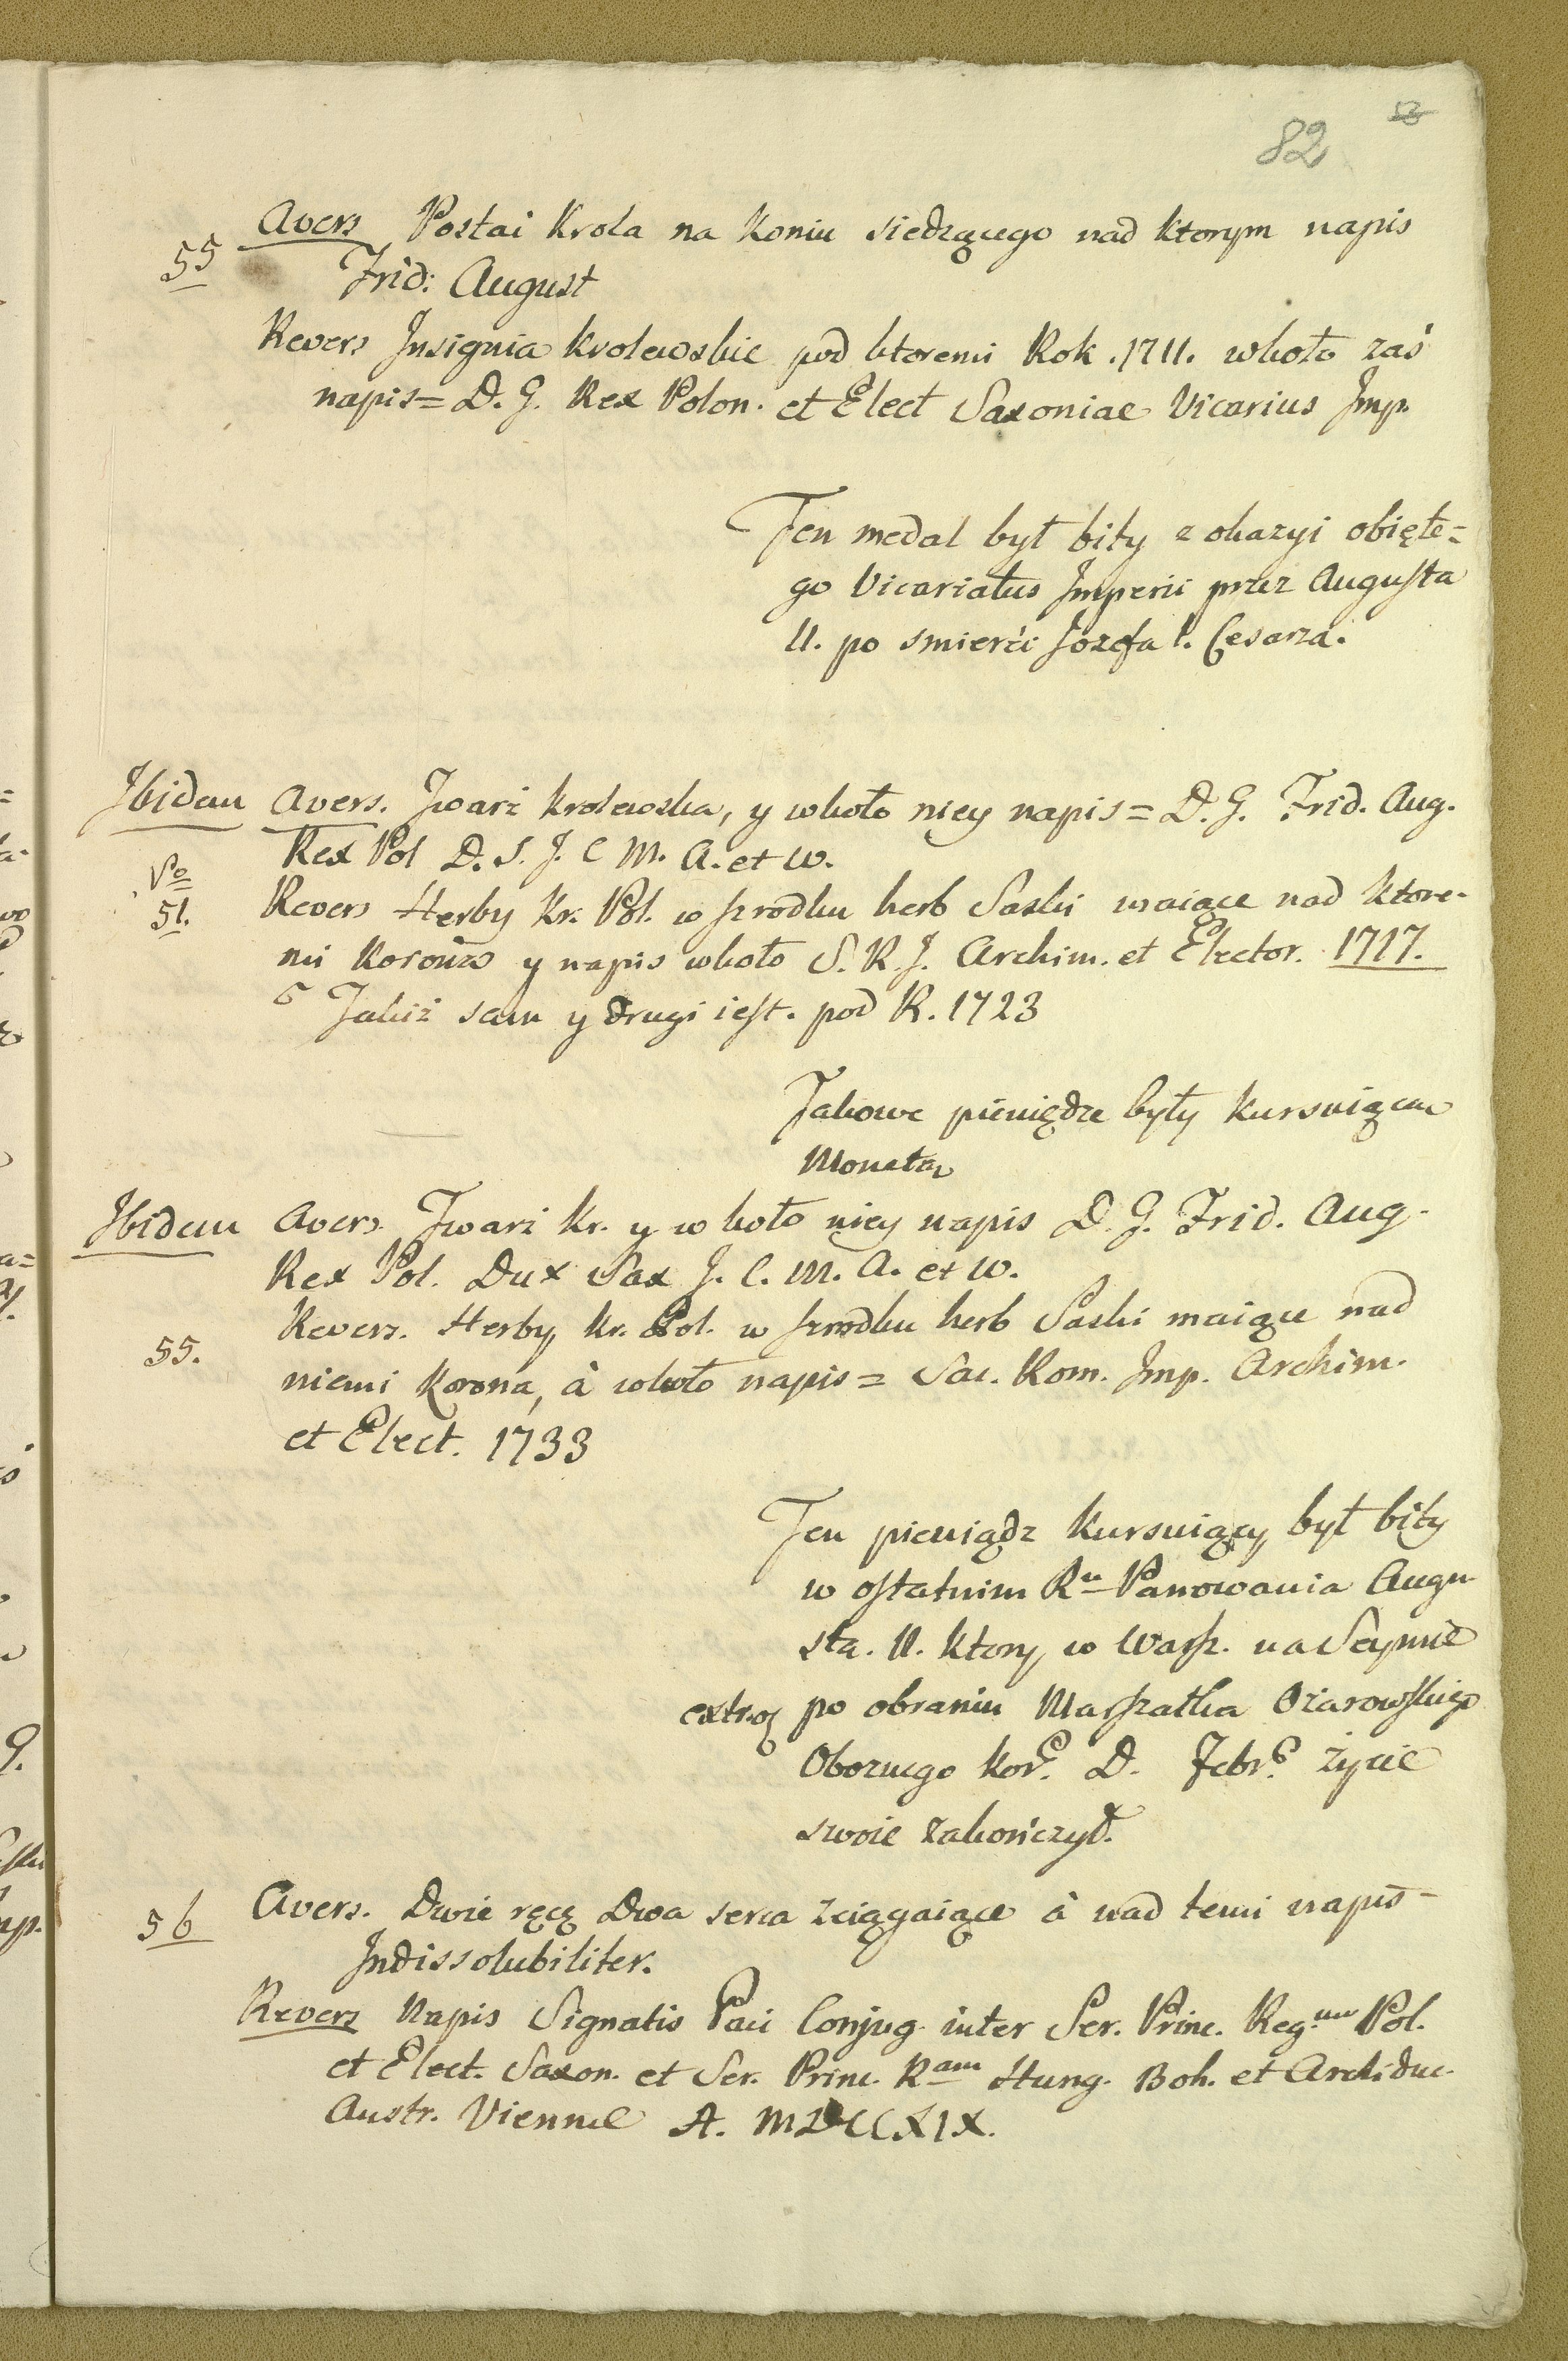 82 53
Avers Postai Krola na Koniu siedzącego nad ktorym napis
55
Frid: August
Revers Insignia Krolewskie pod ktoremi Rok .1711. wkoło zaś
napis= D. G. Rex Polon. et Elect Saxoniae Vicarius Imp.
Ten medal był bity z okazyi obięte=
go Vicariatus Imperii przez Augusta
II. po smierci Jozefa I. Cesarza.
Ibidem Avers. Twarz krolewska, y wkoło niey napis= D. G. Frid. Aug.
Rex Pol D. S. J. C M. A. et W.
No
51.
Revers Herby Kr. Pol. w szrodku herb Saski maiące nad ktore-
mi Korońa y napis wkoło S. R. J. Archim. et Elector. 1717.
Takiż sam y drugi iest. pod R. 1723
Takowe pieniędze były kursuiącą
Monetą
Ibidem Avers Twarz Kr. y w koło niey napis D. G. Frid. Aug.
Rex Pol. Dux Sax J. C. M. A. et W.
Revers. Herby Kr. Pol. w szrodku herb Saski maiące nad
55.
niemi Koroną, à wkoło napis= Sac. Rom. Imp. Archim.
et Elect. 1733
Ten pieniądz Kursuiący był bity
w ostatnim Ru Panowania Augu
sta. II. Ktory w Warsz. na Seymie
extr. po obraniu Marszałka Ożarowskiego
Oboznego Kor. D. Febr. życie
swoie zakończył.
56 Avers. Dwie ręce Dwa serca zciągaiące à nad temi napis-
Indissolubiliter.
Revers Napis Signatis Paci Conjug. inter Ser. Princ. Reg.um Pol.
et Elect. Saxon. et Ser. Princ. Ram Hung. Boh. et Archiduc.
Austr. Viennae A. MDCCXIX.